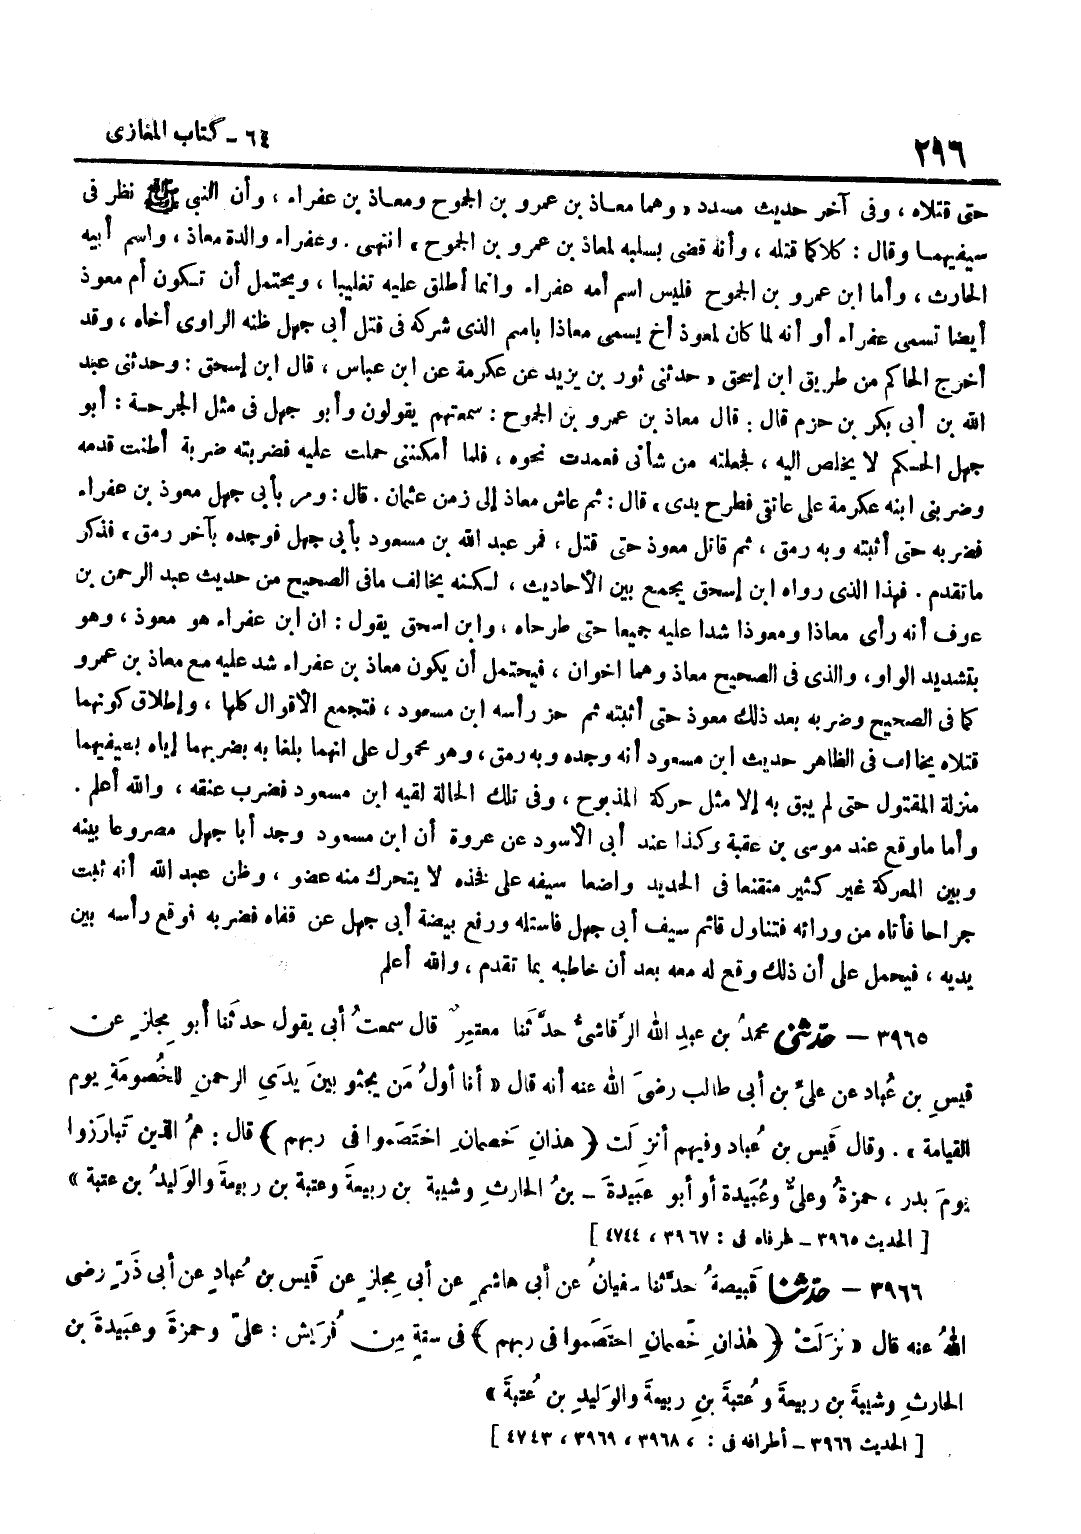 ٢٩٦
٦٤ - كتاب المغازى
حتى قتلاه ، وفى آخر حديث مسدد « وهما معاذ بن عمرو بن الجموح ومعاذ بن عفراء ، وأن النبي ﷺ نظر فى
سيفيهما وقال : كلاكما قتله ، وأنه قضى بسلبه لمعاذ بن عمرو بن الجموح » انتهى . وعفراء والدة معاذ ، واسم أبيه
الحارث ، وأما ابن عمرو بن الجموح فليس اسم أمه عفراء وانما أطلق عليه تغليبا ، ويحتمل أن تكون أم معوذ
أيضا تسمى عفراء أو أنه لما كان لمعوذ أخ يسمى معاذا باسم الذى شركه فى قتل أبى جهل ظنه الراوى أخاه ، وقد
أخرج الحاكم من طريق ابن إسحق « حدثنى ثور بن يزيد عن عكرمة عن ابن عباس ، قال ابن إسحق : وحدثنى عبد
الله بن أبى بكر بن حزم قال : قال معاذ بن عمرو بن الجموح : سمعتهم يقولون وأبو جهل فى مثل الجرحة : أبو
جهل الحكم لا يخلص اليه ، فجعلته من شأنى فعمدت نحوه ، فلما أمكننى حملت عليه فضربته ضربة أطنت قدمه
وضربنى ابنه عكرمة على عاتقى فطرح يدى » قال : ثم عاش معاذ إلى زمن عثمان . قال : ومر بأبى جهل معوذ بن عفراء
فضربه حتى أثبته وبه رمق ، ثم قاتل معوذ حتى قتل ، فمر عبد الله بن مسعود بأبى جهل فوجده بآخر رمق » فذكر
ماتقدم . فهذا الذى رواه ابن إسحق يجمع بين الأحاديث ، لكنه يخالف مافى الصحيح من حديث عبد الرحمن بن
عوف أنه رأى معاذا ومعوذا شدا عليه جميعا حتى طرحاه ، وابن اسحق يقول : ان ابن عفراء هو معوذ ، وهو
بتشديد الواو ، والذى فى الصحيح معاذ وهما اخوان ، فيحتمل أن يكون معاذ بن عفراء شد عليه مع معاذ بن عمرو
كما فى الصحيح وضربه بعد ذلك معوذ حتى أثبته ثم حز رأسه ابن مسعود ، فتجمع الأقوال كلها ، وإطلاق كونهما
قتلاه يخالف فى الظاهر حديث ابن مسعود أنه وجده وبه رمق ، وهو محمول على انهما بلغا به بضربهما إياه بسيفيهما
منزلة المقتول حتى لم يبق به إلا مثل حركة المذبوح ، وفى تلك الحالة لقيه ابن مسعود فضرب عنقه ، والله أعلم .
وأما ماوقع عند موسى بن عقبة وكذا عند أبى الأسود عن عروة أن ابن مسعود وجد أبا جهل مصروعا بينه
وبين المعركة غير كثير متقنعا فى الحديد واضعا سيفه على فخذه لا يتحرك منه عضو ، وظن عبد الله أنه ثبت
جراحا فأتاه من ورائه فتناول قائم سيف أبى جهل فاستله ورفع بيضة أبى جهل عن قفاه فضربه فوقع رأسه بين
يديه ، فيحمل على أن ذلك وقع له معه بعد أن خاطبه بما تقدم ، والله أعلم
٣٩٦٥ - حدّثنى محمدُ بن عبدِ الله الرَّقاشىُّ حدَّثنا معتمِرٌ قال سمعتُ أبى يقول حدثنا أبو مِجلزٍ عن
قيسِ بن عُباد عن علىِّ بن أبى طالب رضىَ الله عنه أنه قال « أنا أولُ مَن يجثو بينَ يدَىِ الرحمنِ للخُصومةِ يوم
القيامة » . وقال قَيس بن عُباد وفيهم أنزِلَت ﴿ هذانِ خَصمانِ اختَصَموا فى ربهم ﴾ قال : همُ الذين تَبارَزوا
يومَ بدر ، حمزةُ وعلىٌّ وعُبَيدة أو أبو عبَيدةَ - بنُ الحارثِ وشيبة بن ربيعةَ وعتبة بن ربيعةَ والوليدُ بن عتبة »
[ الحديث ٣٩٦٥ - طرفاه فى : ٣٩٦٧ ، ٤٧٤٤ ]
٣٩٦٦ - حدّثنا قَبيصةُ حدَّثنا سفيانُ عن أبى هاشمٍ عن أبى مِجلزٍ عن قَيسِ بن عُبادٍ عن أبى ذَرّ رضى
اللهُ عنه قال « نزَلَتْ ﴿ هٰذانِ خَصمانِ اختَصَموا فى ربهم ﴾ فى ستةٍ مِن قُرَيش : علىّ وحمزةَ وعبَيدةَ بن
الحارثِ وشيبةَ بن ربيعةَ وعُتبةَ بنِ ربيعةَ والوَليدِ بن عُتبةَ »
[ الحديث ٣٩٦٦ - أطرافه فى : ، ٣٩٦٨ ، ٣٩٦٩ ، ٤٧٤٣ ]